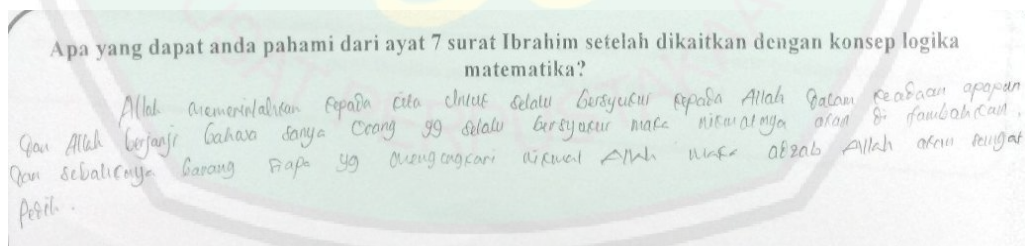 Apa yang dapat anda pahami dari ayat 7 surat Ibrahim setelah dikaitkan dengan konsep logika
matematika?
Allah memerintahkan kepada kita untuk selalu bersyukur kepada Allah dalam keadaan apapun
dan Allah berjanji bahwa orang yg selalu bersyukur maka nikmatnya akan di tambahkan,
dan sebaliknya barang siapa yg mengingkari nikmat Allah maka adzab Allah akan sangat
pedih.